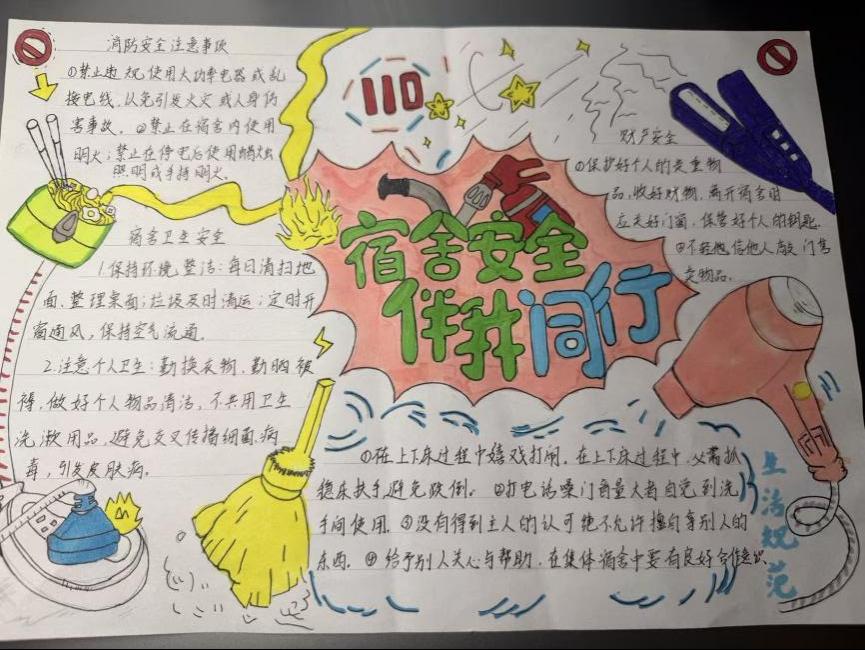 消防安全注意事项
①禁止违规使用大功率电器或乱
接电线,以免引发火灾或人身伤
害事故。②禁止在宿舍内使用
明火;禁止在停电后使用蜡烛
照明或手持明火。
110
财产安全
①保护好个人的贵重物
品,收好财物,离开宿舍时
应关好门窗,保管好个人的钥匙.
②不轻他信他人敲门售
卖物品。
宿舍安全
伴我同行
宿舍卫生安全
1.保持环境整洁:每日清扫地
面、整理桌面;垃圾及时清运;定时开
窗通风,保持空气流通。
2.注意个人卫生:勤换衣物,勤晒被
褥,做好个人物品清洁,不共用卫生
洗漱用品,避免交叉传播细菌、病
毒,引发皮肤病。
①在上下床过程中嬉戏打闹,在上下床过程中,必需抓
稳床扶手避免跌倒。②打电话嗓门音量大者自觉到洗
手间使用.③没有得到主人的认可绝不允许擅自拿别人的
东西.④给予别人关心与帮助,在集体宿舍中要有良好合作意识.
生活规范